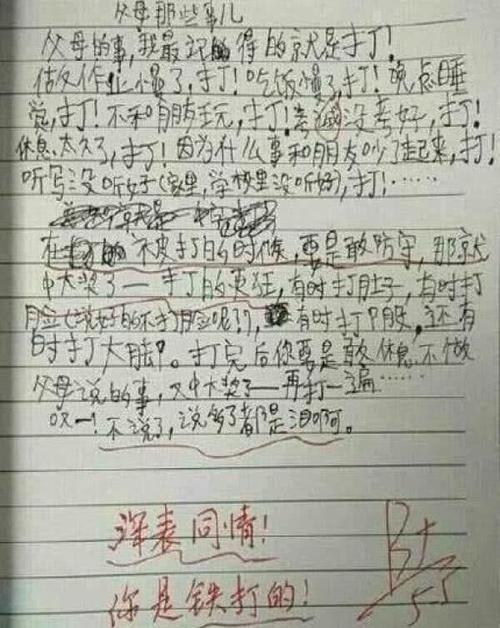 父母那些事儿
父母的事，我最记得的就是打！
做作业慢了，打！吃饭慢了，打！晚点睡
觉，打！不和朋友玩，打！考试没考好，打！
休息太久了，打！因为什么事和朋友吵了起来，打！
听写没听好（家里，学校里没听好），打！……
在被打的时候，要是敢防守，那就
中大奖了——打的更狂，有时打肚子，有时打
脸（说好的不打脸呢？），有时打脚，还有
时打大腿。打完后你要是敢休息不做
父母说的事，又中大奖了——再打一遍……
哎—！不说了，说多了都是泪啊。
深表同情！
你是铁打的！
B+